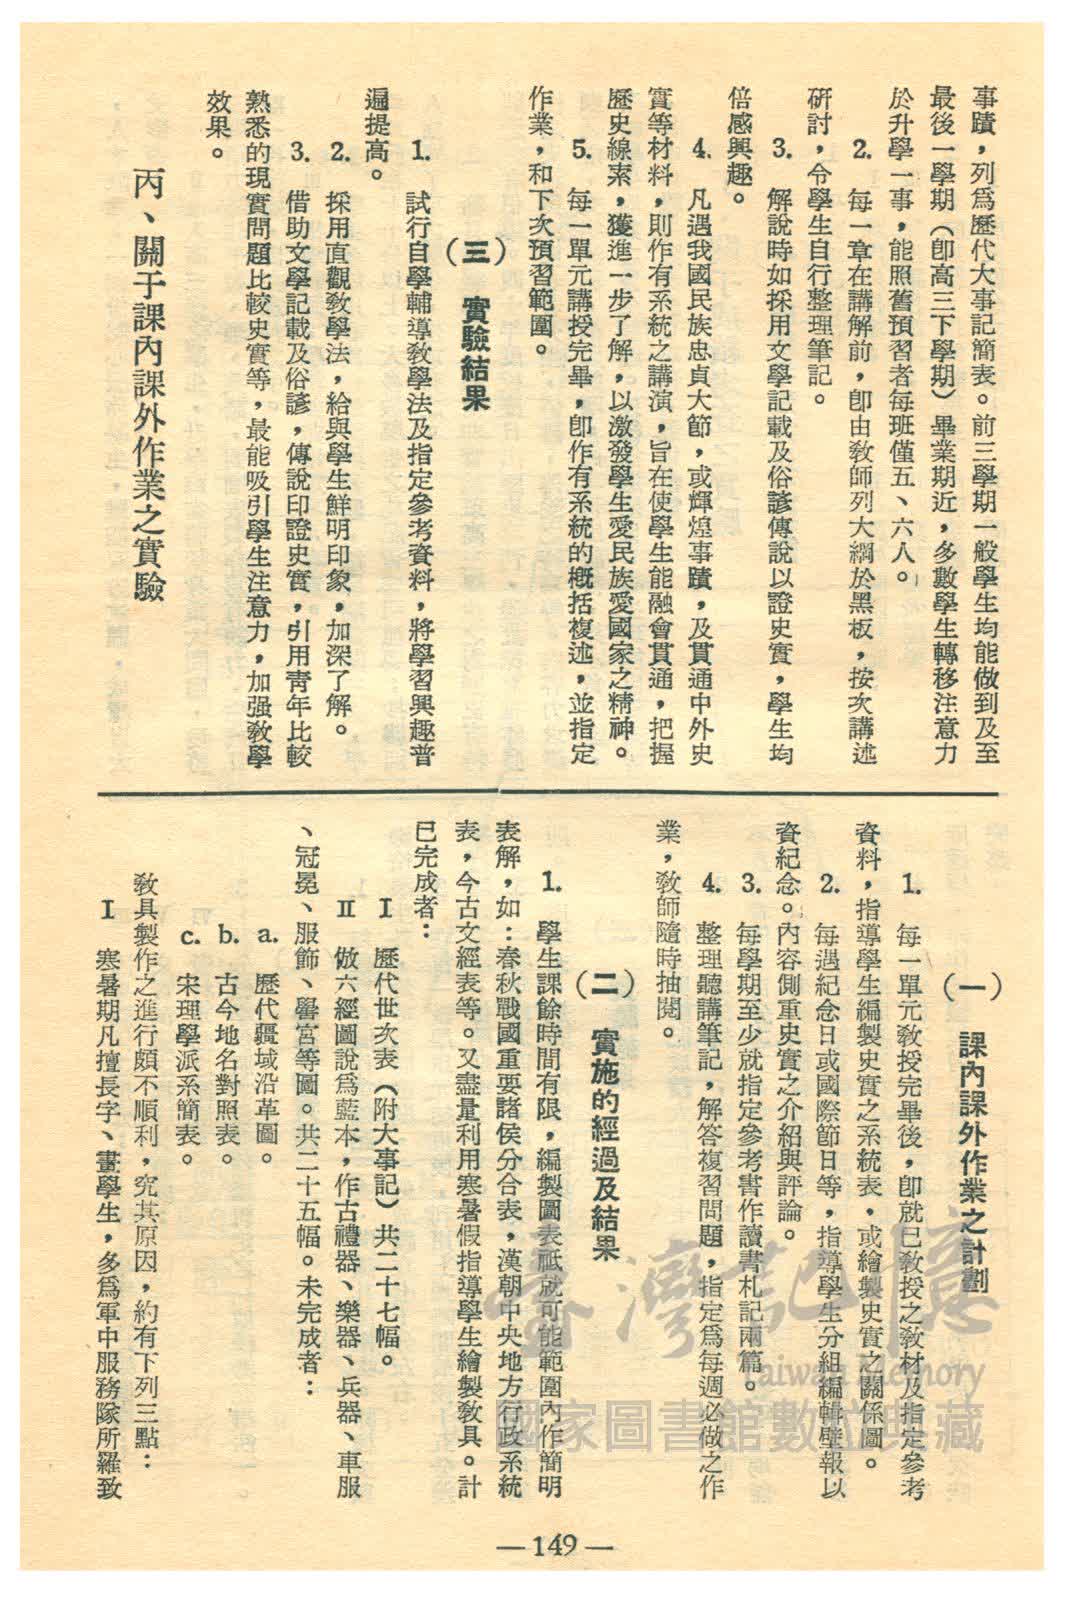 事蹟，列爲歷代大事記簡表。前三學期一般學生均能做到及至
最後一學期（卽高三下學期）畢業期近，多數學生轉移注意力
於升學一事，能照舊預習者每班僅五、六人。
2. 每一章在講解前，卽由教師列大綱於黑板，按次講述
硏討，令學生自行整理筆記。
3. 解說時如採用文學記載及俗諺傳說以證史實，學生均
倍感興趣。
4. 凡遇我國民族忠貞大節，或輝煌事蹟，及貫通中外史
實等材料，則作有系統之講演，旨在使學生能融會貫通，把握
歷史線索，獲進一步了解，以激發學生愛民族愛國家之精神。
5. 每一單元講授完畢，卽作有系統的概括複述，並指定
作業，和下次預習範圍。
（三）　實驗結果
1. 試行自學輔導教學法及指定參考資料，將學習興趣普
遍提高。
2. 採用直觀教學法，給與學生鮮明印象，加深了解。
3. 借助文學記載及俗諺，傳說印證史實，引用靑年比較
熟悉的現實問題比較史實等，最能吸引學生注意力，加强教學
效果。
丙、關于課內課外作業之實驗
（一）　課內課外作業之計劃
1. 每一單元教授完畢後，卽就已教授之教材及指定參考
資料，指導學生編製史實之系統表，或繪製史實之關係圖。
2. 每遇紀念日或國際節日等，指導學生分組編輯壁報以
資紀念。內容側重史實之介紹與評論。
3. 每學期至少就指定參考書作讀書札記兩篇。
4. 整理聽講筆記，解答複習問題，指定爲每週必做之作
業，教師隨時抽閱。
（二）　實施的經過及結果
1. 學生課餘時間有限，編製圖表祇就可能範圍內作簡明
表解，如：春秋戰國重要諸侯分合表，漢朝中央地方行政系統
表，今古文經表等。又盡量利用寒暑假指導學生繪製教具。計
已完成者：
Ⅰ 歷代世次表（附大事記）共二十七幅。
Ⅱ 倣六經圖說爲藍本，作古禮器、樂器、兵器、車服
、冠冕、服飾、黌宮等圖。共二十五幅。未完成者：
a. 歷代疆域沿革圖。
b. 古今地名對照表。
c. 宋理學派系簡表。
教具製作之進行頗不順利，究其原因，約有下列三點：
Ⅰ 寒暑期凡擅長字、畫學生，多爲軍中服務隊所羅致
— 149 —
臺灣記憶
Taiwan Memory
國家圖書館數位典藏